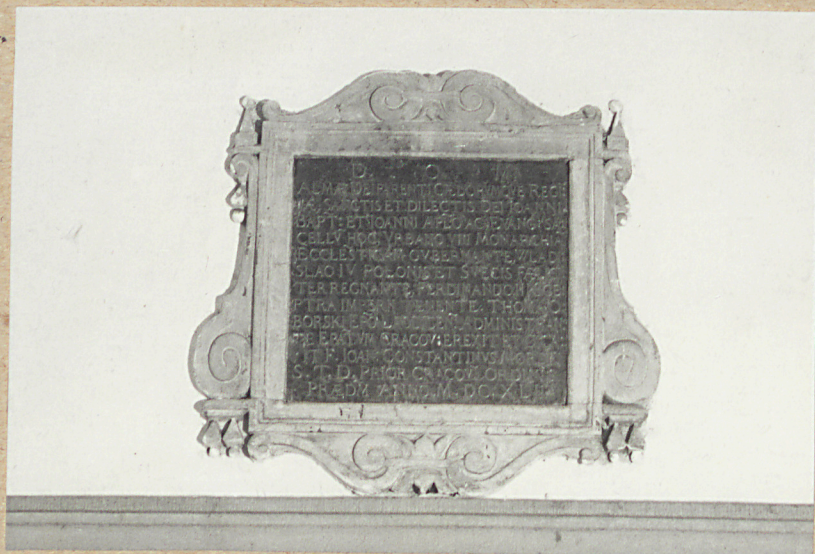 D. O. M
ALMAE DEI PARENTI CAELORUMQUE REGI
SACTIS ET DILECTIS DEI IOANNI
BAPT: ET IOANNI APLO AC EVANG SA
CELLV HOC VRBANO VIII MONARCHIA
ECCLESTICAM GVBERNANTE, VLAD
SLAO IV POLONIS ET SVECIS FELIC
TER REGNANTE, FERDINANDO III SCE
PTRA IMPERII TENENTE. THOMA O
BORSKI ADMINISTRAN
TE EPATVM CRACOV: EREXIT ET
IT F. IOAN CONSTANTINVS
S. T. D. PRIOR CRACOV: ORDINIS
PRAEDM ANNO M. DC.